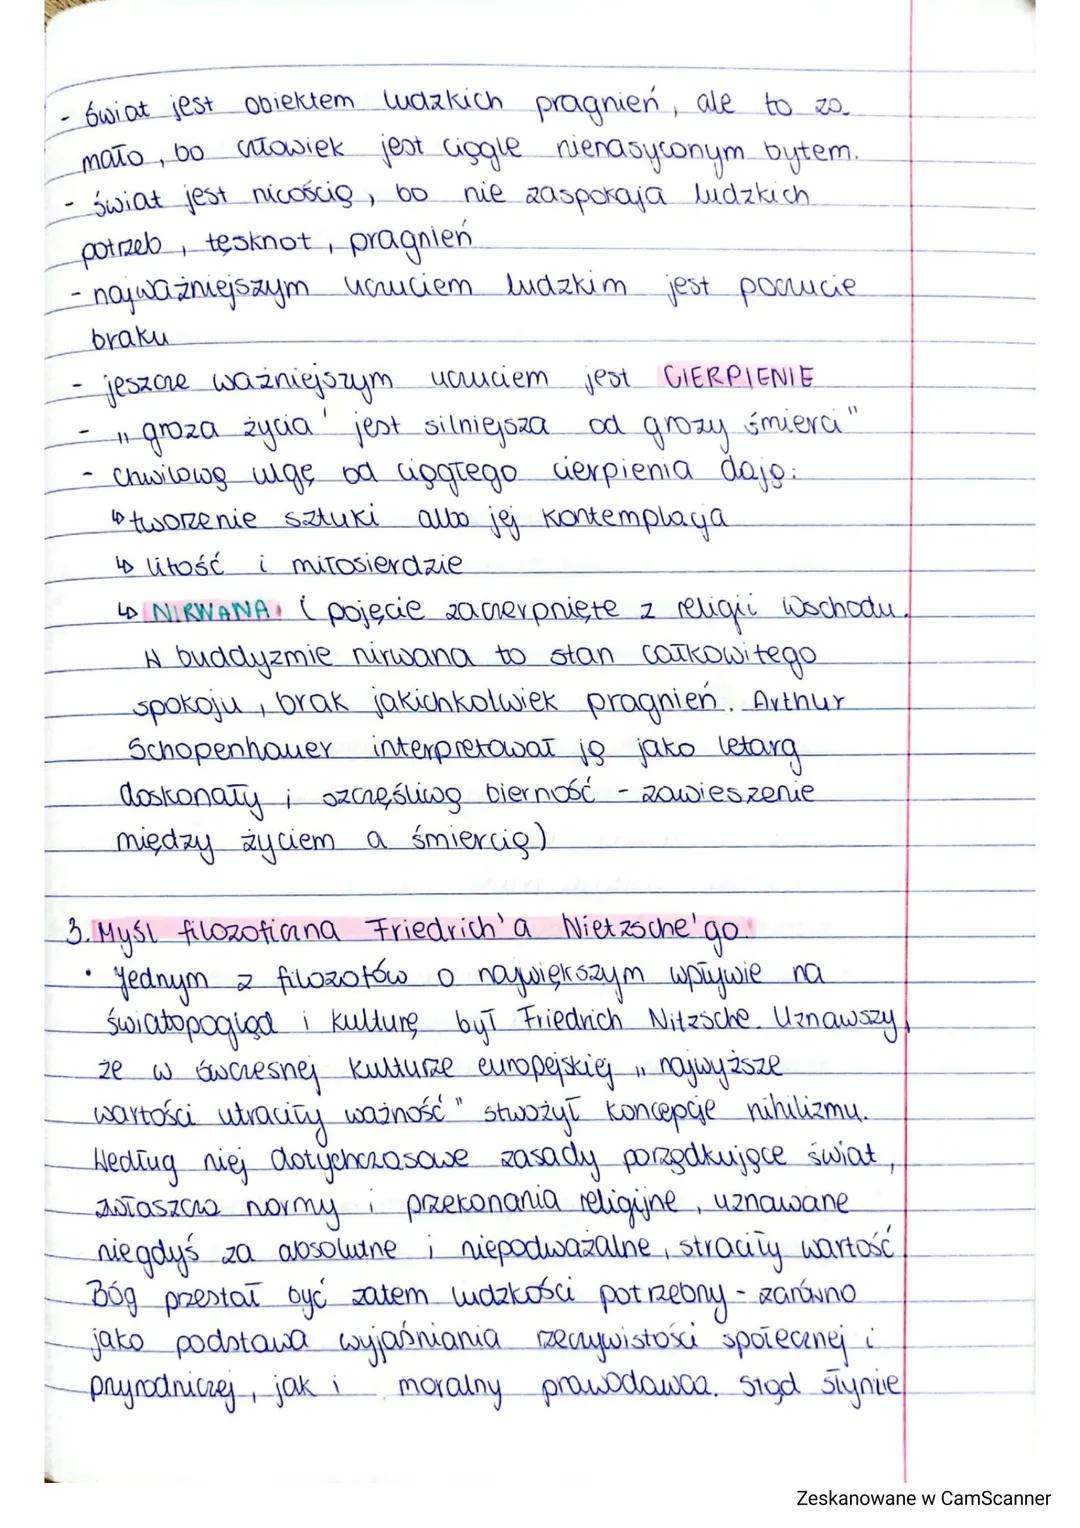 - świat jest obiektem ludzkich pragnień, ale to za
mało, bo człowiek jest ciągle nienasyconym bytem.
- świat jest nicością, bo nie zaspokaja ludzkich
potrzeb, tęsknot, pragnień
- najważniejszym uczuciem ludzkim jest poczucie
braku
- jeszcze ważniejszym uczuciem jest CIERPIENIE
- „groza życia' jest silniejsza od grozy śmierci"
- chwilową ulgę od ciągłego cierpienia dają:
↳ tworzenie sztuki albo jej kontemplacja
↳ litość i miłosierdzie
↳ NIRWANA (pojęcie zaczerpnięte z religii wschodu.
W buddyzmie nirwana to stan całkowitego
spokoju, brak jakichkolwiek pragnień. Arthur
Schopenhauer interpretował ją jako letarg
doskonały i szczęśliwą bierność - zawieszenie
między życiem a śmiercią)
3. Myśl filozoficzna Friedrich'a Nietzsche'go.
• Jednym z filozofów o największym wpływie na
światopogląd i kulturę był Friedrich Nitzsche. Uznawszy,
że w ówczesnej kulturze europejskiej „najwyższe
wartości utraciły ważność" stwożył koncepcje nihilizmu.
Według niej dotychczasowe zasady porządkujące świat,
zwłaszcza normy i przekonania religijne, uznawane
niegdyś za absolutne i niepodważalne, straciły wartość.
Bóg przestał być zatem ludzkości potrzebny - zarówno
jako podstawa wyjaśniania rzeczywistości społecznej i
przyrodniczej, jak i moralny prawodawca. Stąd słynne
Zeskanowane w CamScanner